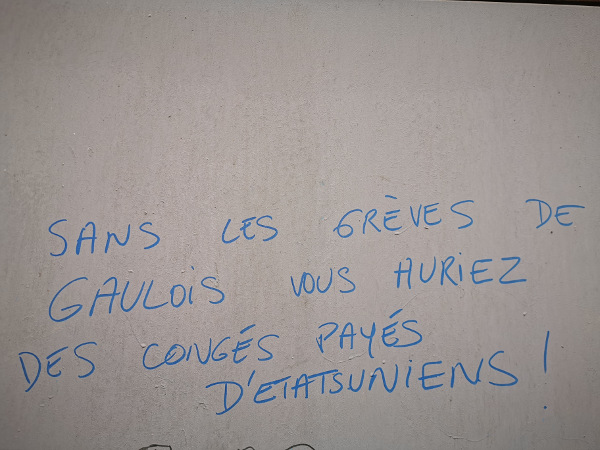 SANS LES GRÈVES DE
GAULOIS VOUS AURIEZ
DES CONGÉS PAYÉS
D'ETATSUNIENS !